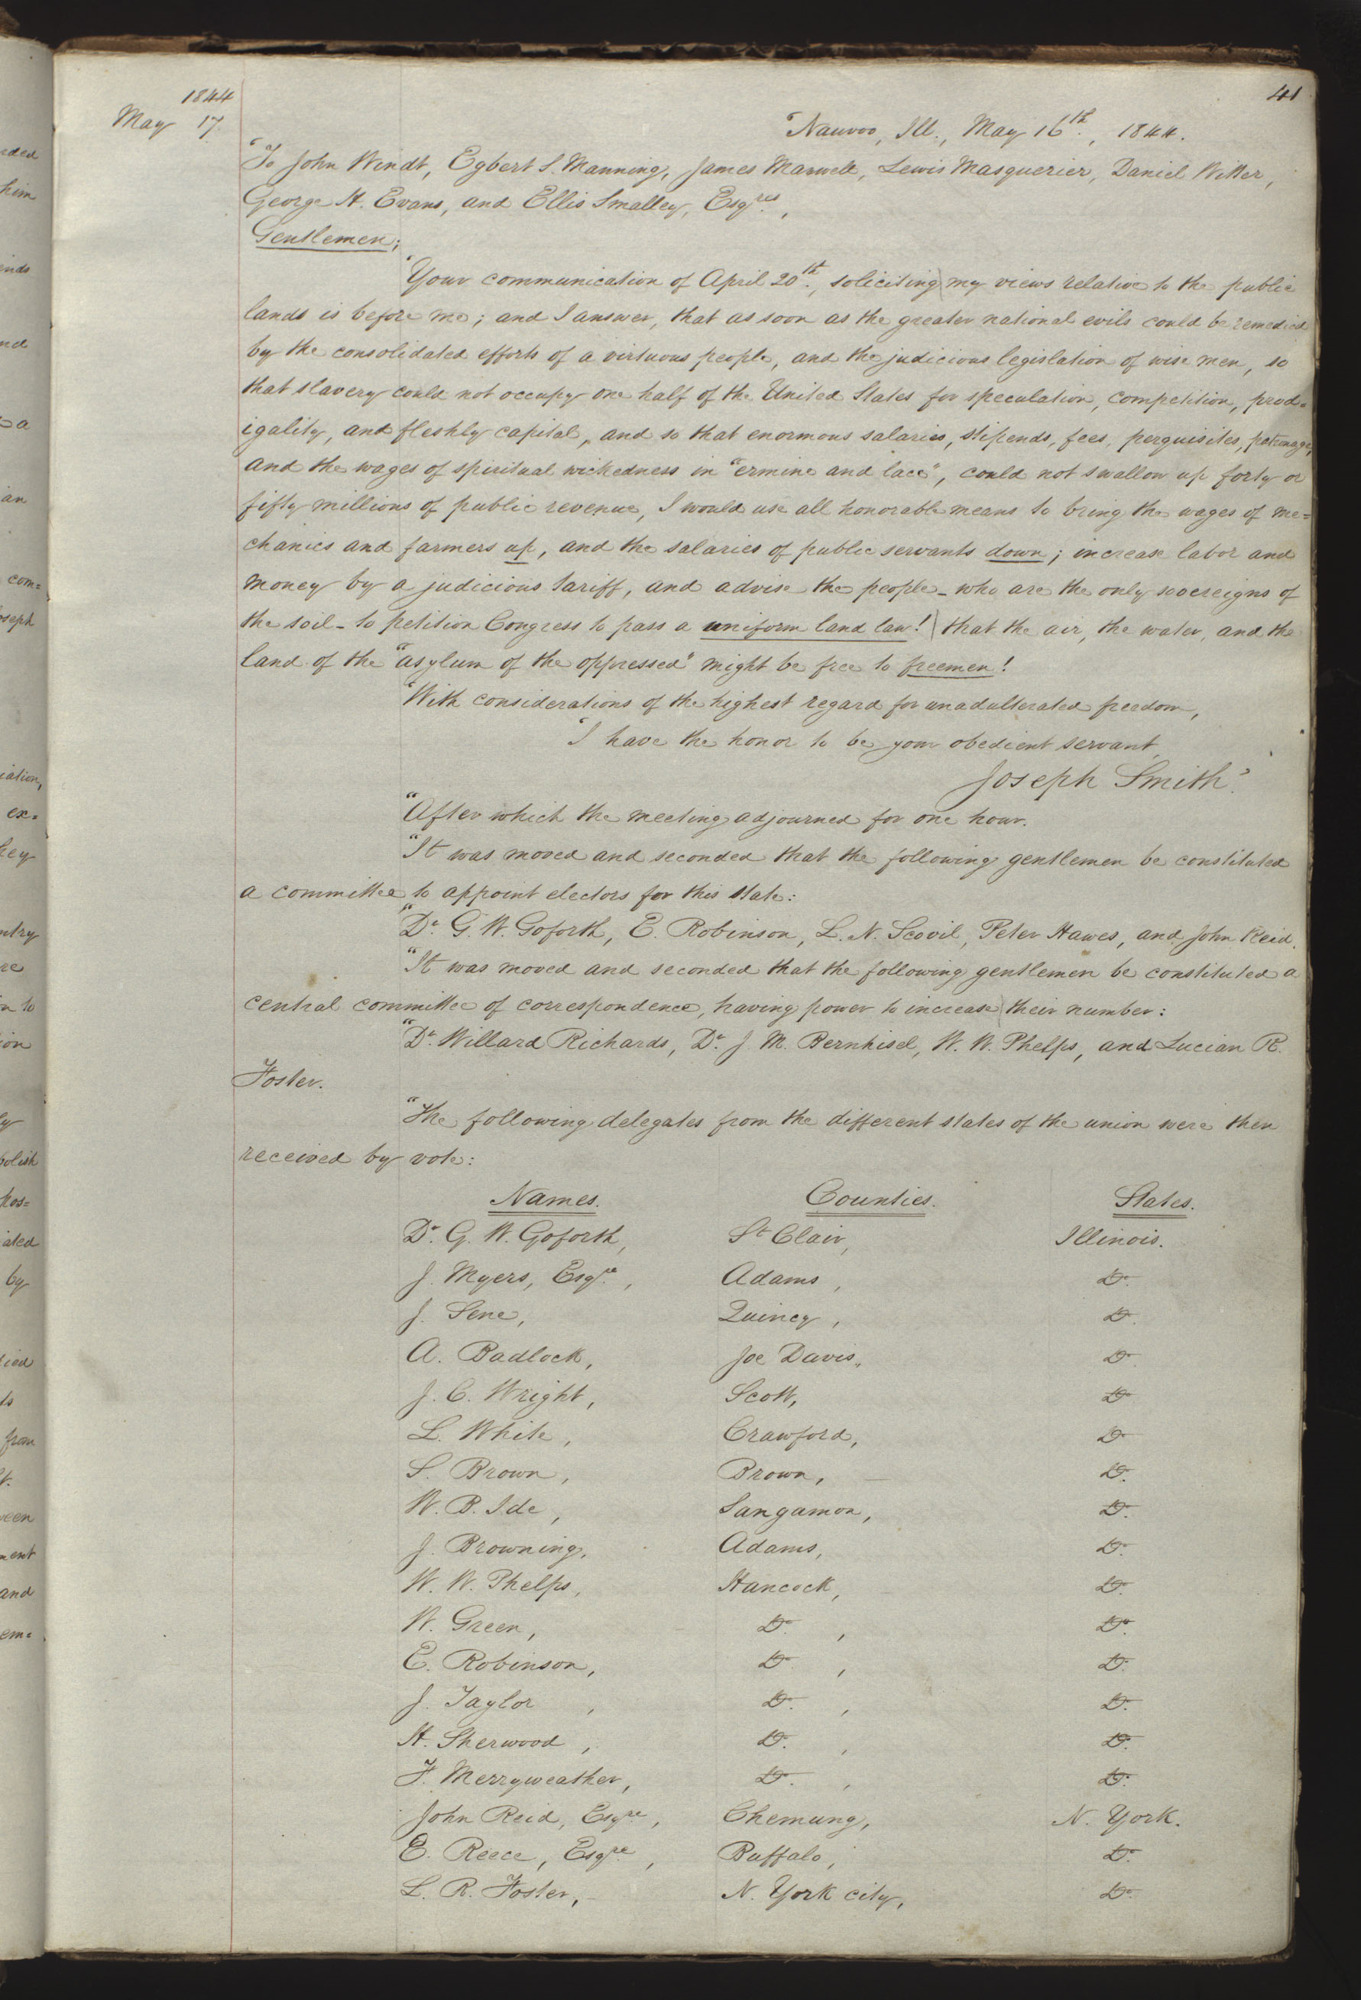 41
1844
May 17.
"Nauvoo, Ill., May 16th., 1844.
"To John Windt, Egbert S. Manning, James Maxwell, Lewis Masquerier, Daniel Witter,
George H. Evans, and Ellis Smalley, Esqres,
Gentlemen;
"Your communication of April 20th., soliciting my views relative to the public
lands is before me; and I answer, that as soon as the greater national evils could be remedied
by the consolidated efforts of a virtuous people, and the judicious legislation of wise men, so
that slavery could not occupy one half of the United States for speculation, competition, prod=
igality, and fleshly capital, and so that enormous salaries, stipends, fees, perquisites, patronage,
and the wages of spiritual wickedness in "ermine and lace", could not swallow up forty or
fifty millions of public revenue, I would use all honorable means to bring the wages of me=
chanics and farmers up, and the salaries of public servants down; increase labor and
money by a judicious tariff, and advise the people – who are the only sovereigns of
the soil – to petition Congress to pass a uniform land law! that the air, the water, and the
land of the "asylum of the oppressed" might be free to freemen!
"With considerations of the highest regard for unadulterated freedom,
"I have the honor to be your obedient servant
Joseph Smith."
"After which the meeting adjourned for one hour.
"It was moved and seconded that the following gentlemen be constituted
a committee to appoint electors for this state:
"Dr. G. W. Goforth, E. Robinson, L. N. Scovil, Peter Hawes, and John Reid.
"It was moved and seconded that the following gentlemen be constituted a
central committee of correspondence, having power to increase their number:
"Dr. Willard Richards, Dr. J. M. Bernhisel, W. W. Phelps, and Lucian R.
Foster.
"The following delegates from the different states of the union were then
received by vote:
Names. Counties. States.
Dr. G. W. Goforth, St Clair, Illinois.
J. Myers, Esqre., Adams, Do.
J. Sene, Quincy, Do.
A. Badlock, Joe Davis, Do
J. C. Wright, Scott, Do
L. White, Crawford, Do
S. Brown, Brown, Do.
W. B. Ide, Sangamon, Do.
J. Browning, Adams, Do.
W. W. Phelps, Hancock, Do.
W. Green, Do., Do.
E. Robinson, Do, Do.
J. Taylor, Do., Do.
H. Sherwood, Do., Do.
F. Merryweather, Do., Do.
John Reid, Esqre, Chemung, N. York.
E. Reece, Esqre, Buffalo, Do.
L. R. Foster, N. York city, Do.